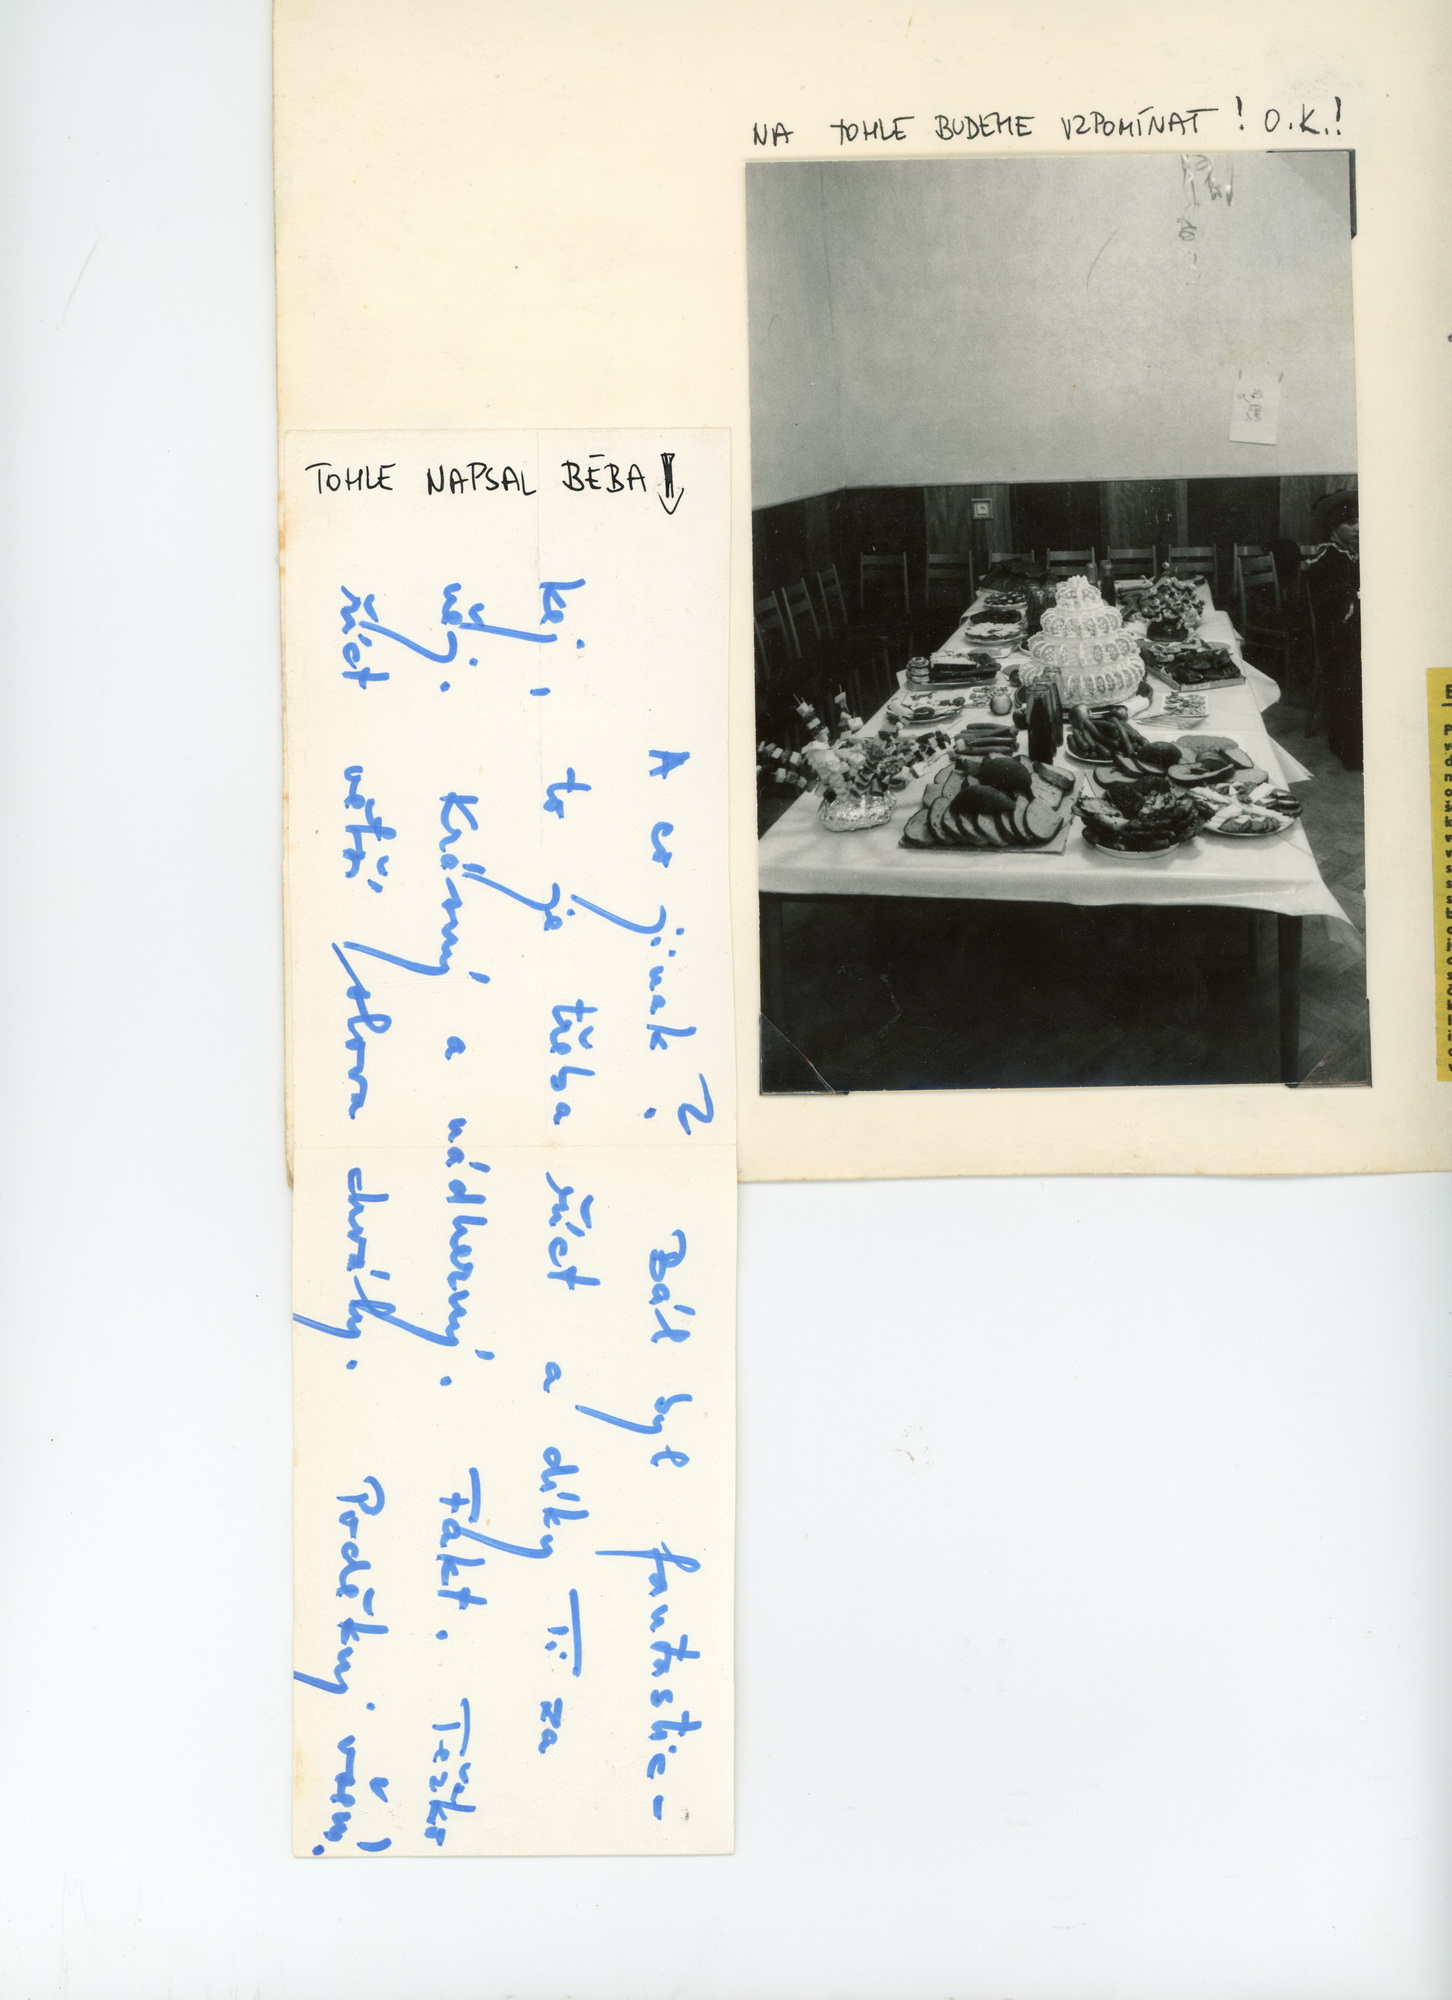 NA TOHLE BUDEME VZPOMÍNAT! O.K.!
TOHLE NAPSAL BÉBA
A co jinak? Bál byl fantastic-
kej, to je třeba říct a díky Ti za
něj. Krásný a nádherný. Fakt. Těžko
říct větší slova chvály. Poděkuj všem!